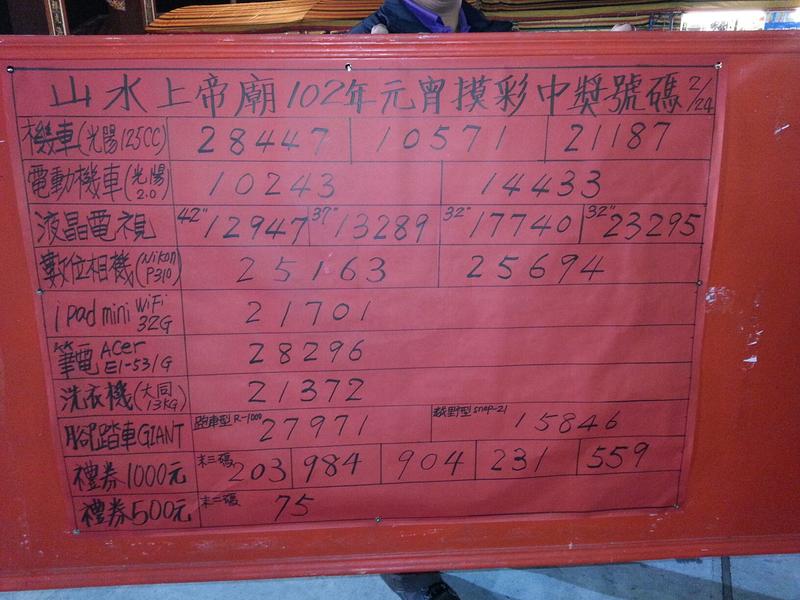 山水上帝廟102年元宵摸彩中獎號碼2/24
機車(光陽125CC) 28447 10571 21187
電動機車(光陽2.0) 10243 14433
液晶電視 42"12947 37"13289 32"17740 32"23295
數位相機(Nikon P310) 25163 25694
ipad mini WiFi 32G 21701
筆電 Acer E1-531G 28296
洗衣機(大同13KG) 21372
腳踏車GIANT 跑車型 R-1000 27971 越野型 snap-21 15846
禮券1000元 末三碼 203 984 904 231 559
禮券500元 末二碼 75